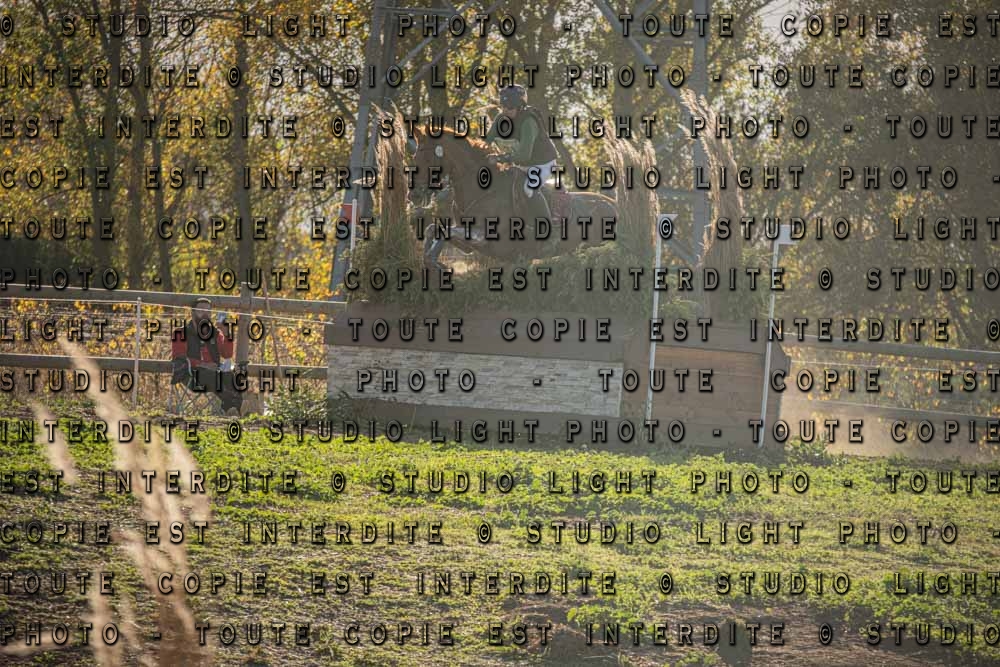 © STUDIO LIGHT PHOTO - TOUTE COPIE EST
INTERDITE © STUDIO LIGHT PHOTO - TOUTE COPIE
EST INTERDITE © STUDIO LIGHT PHOTO - TOUTE
COPIE EST INTERDITE © STUDIO LIGHT PHOTO -
TOUTE COPIE EST INTERDITE © STUDIO LIGHT
PHOTO - TOUTE COPIE EST INTERDITE © STUDIO
LIGHT PHOTO - TOUTE COPIE EST INTERDITE
© STUDIO LIGHT PHOTO - TOUTE COPIE EST
INTERDITE © STUDIO LIGHT PHOTO - TOUTE COPIE
EST INTERDITE © STUDIO LIGHT PHOTO - TOUTE
COPIE EST INTERDITE © STUDIO LIGHT PHOTO -
TOUTE COPIE EST INTERDITE © STUDIO LIGHT
PHOTO - TOUTE COPIE EST INTERDITE © STUDIO